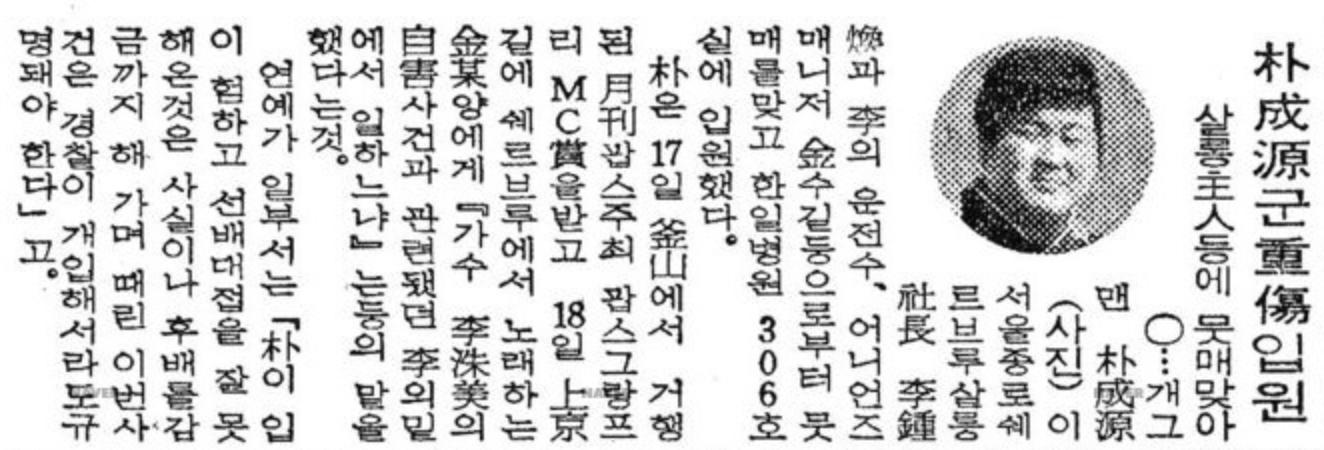 朴成源군重傷입원
살롱主人등에 못매맞아
○…개그
맨 朴成源
(사진)이
서울종로쉐
르브루살롱
社長 李鍾
煥과 李의 운전수、어니언즈
매니저 金수길등으로부터 뭇
매를맞고 한일병원 306호
실에 입원했다。
朴은 17일 釜山에서 거행
된 月刊팝스주최 팝스그랑프
리 MC賞을받고 18일 上京
길에 쉐르브루에서 노래하는
金某양에게 『가수 李洙美의
自害사건과 관련됐던 李의밑
에서 일하느냐』는등의 말을
했다는것。
연예가 일부서는 「朴이 입
이 험하고 선배대접을 잘못
해온것은 사실이나 후배를감
금까지 해 가며 때린 이번사
건은 경찰이 개입해서라도규
명돼야 한다」고。